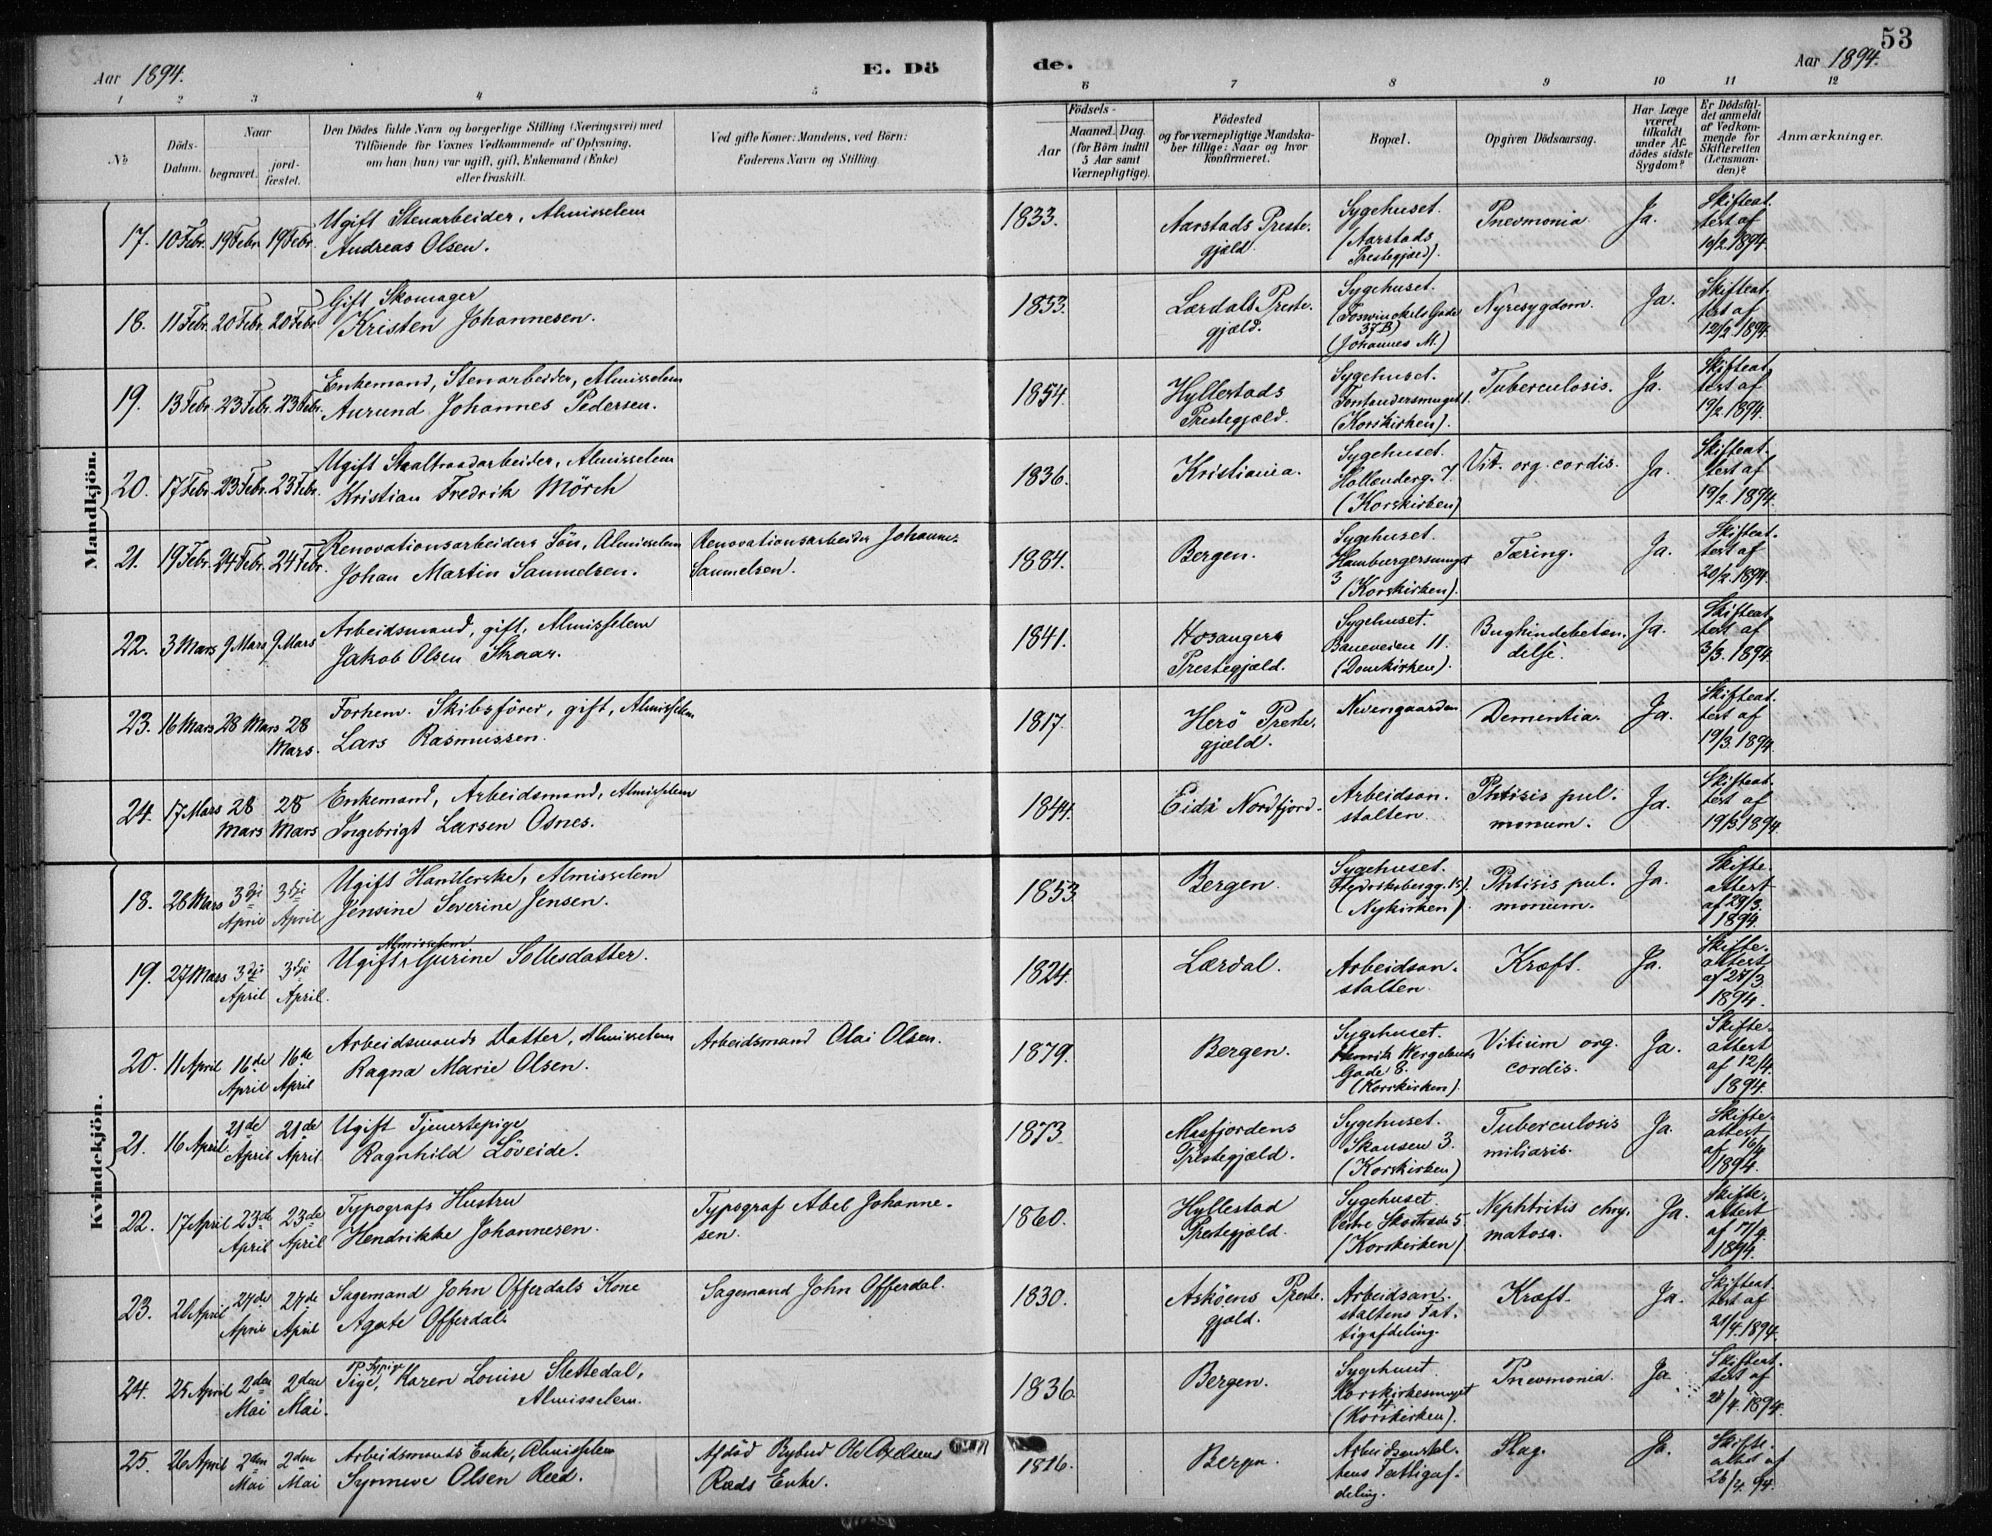 53
Aar 1894. E. Dö de. Aar 1894.
1 2 3 4 5 6 7 8 9 10 11 12
No
Döds-Datum.
Naar
begravet.
jord-fæstet.
Den Dödes fulde Navn og borgerlige Stilling (Næringsvei) med
Tilföiende for Voxnes Vedkommende af Oplysning,
om han (hun) var ugift, gift, Enkemand (Enke)
eller fraskilt.
Ved gifte Koner: Mandens, ved Börn:
Faderens Navn og Stilling.
Födsels-
Aar
Maaned. Dag.
(for Börn indtil
5 Aar samt
Værnepligtige).
Födested
og for værnepligtige Mandska-
ber tillige: Naar og hvor
konfirmeret.
Bopæl.
Opgiven Dödsaarsag.
Har Læge
været
tilkaldt
under Af-
dödes sidste
Sygdom?
Er Dödsfal-
det anmeldt
af Vedkom-
mende for
Skifteretten
(Lensman-
den)?
Anmærkninger.
Mandkjön.
17. 10 Febr. 19 Febr. 19 Febr.
Ugift Stenarbeider, Almisselem
Andreas Olsen.
1833.
Aarstads Preste-
gjæld.
Sygehuset.
(Aarstads
Prestegjæld).
Pnevmonia
Ja.
Skifteat-
test af
10/2. 1894.
18. 11 Febr. 20 Febr. 20 Febr.
Gift Skomager
Kristen Johannesen.
1853.
Lærdals Preste-
gjæld.
Sygehuset.
(Foswinckels Gade
37 B)
(Johannes M.)
Nyresygdom.
Ja.
Skifteat-
test af
12/2. 1894.
19. 13 Febr. 23 Febr. 23 Febr.
Enkemand, Stenarbeider, Almisselem
Aurund Johannes Pedersen.
1854.
Hyllestads
Prestegjæld.
Sygehuset.
(Korskirken).
Tuberculosis.
Ja.
Skifteat-
test af
19/2. 1894.
20. 17 Febr. 23 Febr. 23 Febr.
Ugift Staaltraadarbeider, Almisselem
Kristian Fredrik Mörch
1836.
Kristiania.
Sygehuset.
Hollenderg. 7.
(Korskirken)
Vit. org. cordis.
Ja.
Skifteat-
test af
19/2. 1894.
21. 19 Febr. 24 Febr. 24 Febr.
Renovationsarbeiders Sön, Almisselem
Johan Martin Samuelsen.
Renovationsarbeider Johannes
Samuelsen.
1884.
Bergen.
Sygehuset.
Hamburgersmuget
3
(Korskirken).
Tæring.
Ja.
Skifteat-
test af
20/2. 1894.
22. 3 Mars 9 Mars 9 Mars
Arbeidsmand, gift, Almisselem
Jakob Olsen Skaar.
1841.
Hosangers
Prestegjæld.
Sygehuset.
Baneveien 11.
(Domkirken).
Bughindebetæn-
delse.
Ja.
Skifteat-
test af
3/3. 1894.
23. 16 Mars 28 Mars 28
Mars.
Forhenv. Skibsförer, gift, Almisselem
Lars Rasmussen.
1817.
Herö Preste-
gjæld.
Nevengaarden
Dementia.
Ja.
Skifteat-
test af
19/3. 1894.
24. 17 Mars 28
Mars 28
Mars
Enkemand, Arbeidsmand, Almisselem
Ingebrigt Larsen Osnes.
1844.
Eids Nordfjord.
Arbeidsan-
stalten.
Phtisis pul-
monum.
Ja.
Skifteat-
test af
19/3 1894.
Kvindekjön.
18. 28 Mars 3dje
April 3dje
April
Ugift Handlerske, Almisselem
Jensine Severine Jensen.
1853
Bergen.
Sygehuset.
(Nykirken).
Phtisis pul-
monum.
Ja.
Skifte-
attest
af 29/3.
1894.
19. 27 Mars 3dje
April 3dje
April.
Almisselem
Ugift, Gurine Sollesdatter.
1824.
Lærdal.
Arbeidsan-
stalten.
Kræft.
Ja.
Skifte-
attest
af 27/3
1894.
20. 11 April 16de
April 16de
April
Arbeidsmands Datter, Almisselem
Ragna Marie Olsen.
Arbeidsmand Olai Olsen.
1879.
Bergen.
Sygehuset.
Henrik Wergelands
Gade 8.
(Korskirken).
Vitium org.
cordis.
Ja.
Skifte-
attest
af 12/4
1894.
21. 16 April 21de
April 21de
April
Ugift Tjenestepige
Ragnhild Löveide.
1873.
Masfjordens
Prestegjæld.
Sygehuset.
Skansen 3.
(Korskirken)
Tuberculosis
miliaris.
Ja.
Skifte-
attest
af 16/4
1894.
22. 17 April 23de
April 23de
April
Typografs Hustru
Hendrikke Johannesen.
Typograf Abel Johanne-
sen.
1860.
Hyllestad
Prestegjæld.
Sygehuset
(Korskirken)
Nephtritis chry-
matosa.
Ja.
Skifte-
attest
af 17/4
1894.
23. 20 April 27de
April 27de
April
Sagemand John Offerdals Kone
Agate Offerdal.
Sagemand John Offerdal.
1830.
Asköens Preste-
gjæld.
Arbeidsan-
staltens Fat-
tigafdeling.
Kræft.
Ja.
Skifteat-
test af
21/4. 1894.
24. 25 April 2den
Mai 2den
Mai.
Pige, Karen Louise Slettedal,
Almisselem.
1836
Bergen.
Sygehuset
Korskirkesmuget
4
(Korskirken).
Pnevmonia.
Ja
Skifteat-
test af
27/4. 1894.
25. 26 April 2den
Mai 2den
Mai
Arbeidsmands Enke, Almisselem
Synneve Olsen Reed.
Afdöd Bybud Ole Axelsens
Ræds Enke.
1816.
Bergen.
Arbeidsanstal-
tens Fattigaf-
deling.
Slag.
Ja.
Skifte-
attest af
26/4. 94.